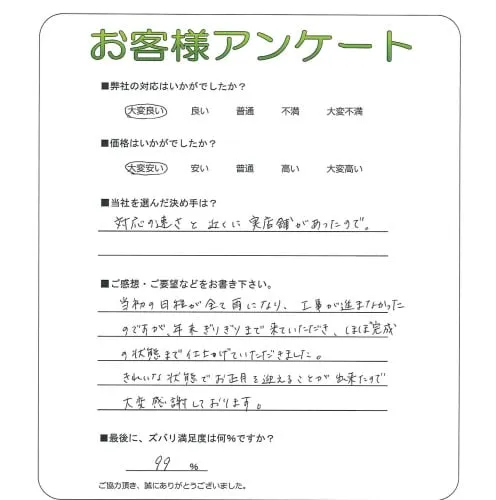 お客様アンケート
■弊社の対応はいかがでしたか？
大変良い 良い 普通 不満 大変不満
■価格はいかがでしたか？
大変安い 安い 普通 高い 大変高い
■当社を選んだ決め手は？
対応の速さと近くに実店舗があったので。
■ご感想・ご要望などをお書き下さい。
当初の日程が全て雨になり、工事が進まなかった
のですが、年末ぎりぎりまで来ていただき、ほぼ完成
の状態まで仕上げていただきました。
きれいな状態でお正月を迎えることが出来たので
大変感謝しております。
■最後に、ズバリ満足度は何%ですか？
99 %
ご協力頂き、誠にありがとうございました。